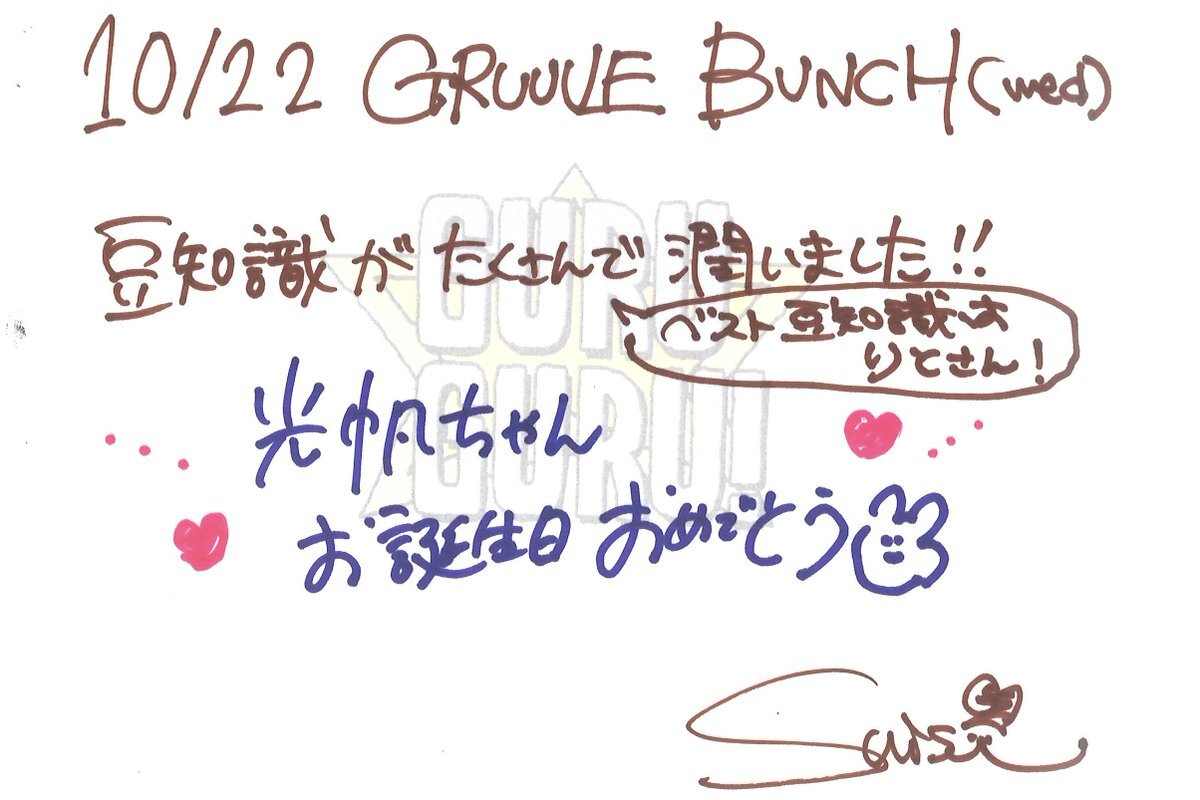 10/22 GRUUVE BUNCH (wed)
豆知識がたくさんで潤いました!!
ベスト豆知識は
りとさん!
光帆ちゃん
お誕生日おめでとう
GURU
GURU!